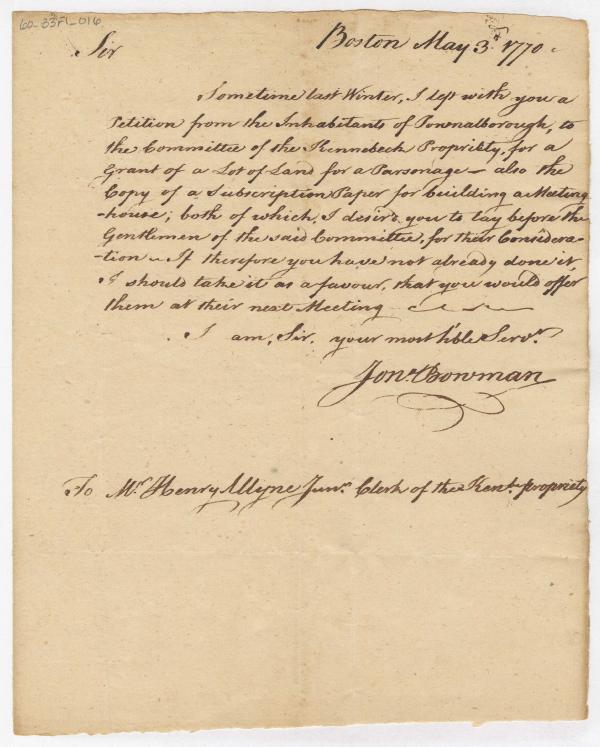 60-33F1-016
Boston May 3d. 1770.
Sir
Sometime last Winter, I left with you a
Petition from the Inhabitants of Pownalborough, to
the Committee of the Kennebeck Propriety, for a
Grant of a Lot of Land for a Parsonage — also the
Copy of a Subscription Paper for building a Meeting
-house; both of which, I desir'd you to lay before the
Gentlemen of the said Committee, for their Considera-
-tion — If therefore you have not already done it,
I should take it as a favour, that you would offer
them at their next Meeting
I am, Sir, your most h'ble Servt.
Jona. Bowman
To Mr. Henry Alleyne Junr. Clerk of the Kenbk. Propriety